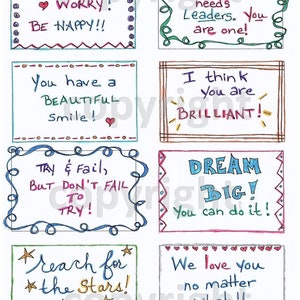 WORRY!
BE HAPPY!!
needs
Leaders. You
are one!
You have a
BEAUTIFUL
smile!
I think
you are
BRILLIANT!
TRY & FAIL,
BUT DON'T FAIL
TO
TRY!
DREAM
BIG!
You can do it!
reach for
the Stars!
We love you
no matter
copyright
copyright
copyright
copyright